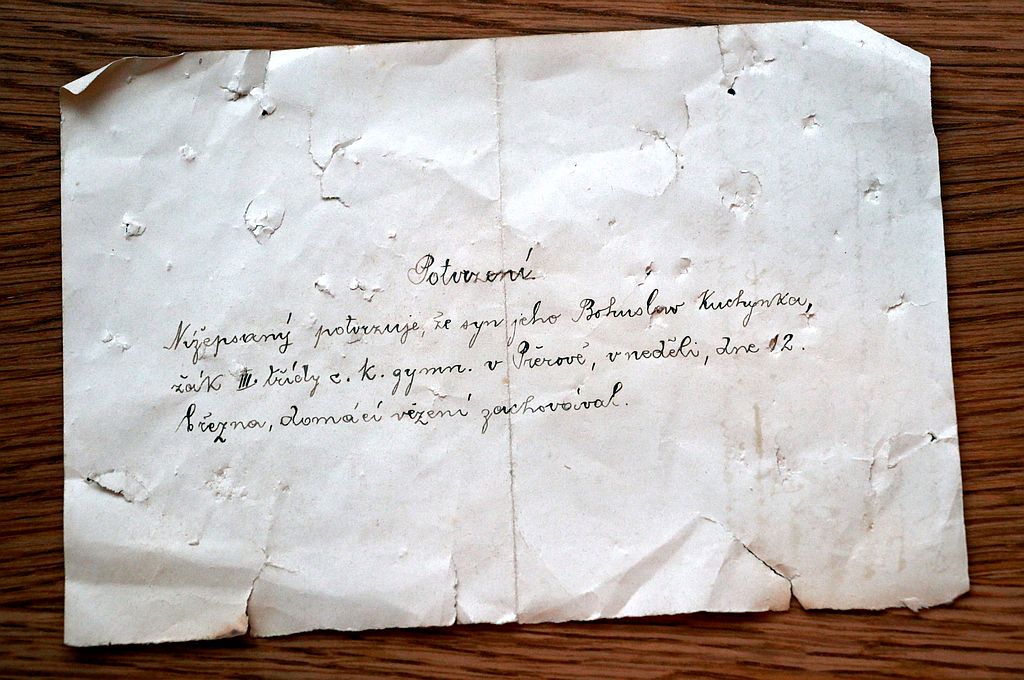 Potvrzení
Nížepsaný potvrzuje, že syn jeho Bohuslav Kuchynka,
žák III. třídy c. k. gymn. v Přerově, v neděli, dne 12.
března, domácí vězení zachovával.